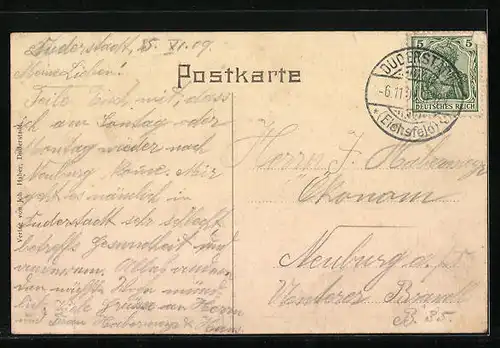 Duderstadt, 5. XI. 09.
Meine Lieben!
Teile Euch mit, dass
ich am Sontag oder
Montag wieder nach
Neuburg komme. Mir
geht es nämlich in
Duderstadt sehr schlecht
betreffs Gesundheit und
Alles andere
den mündlich. Viele Grüsse an Herrn
und Frau
Verlag von Joh. Haber, Duderstadt.
Postkarte
DUDERSTADT
-6.11.
* (Eichsfeld)
5 5
DEUTSCHES REICH
Herrn J. Habermayr
Ökonom
Neuburg a. D.
Unteres Brandl
B. 35.